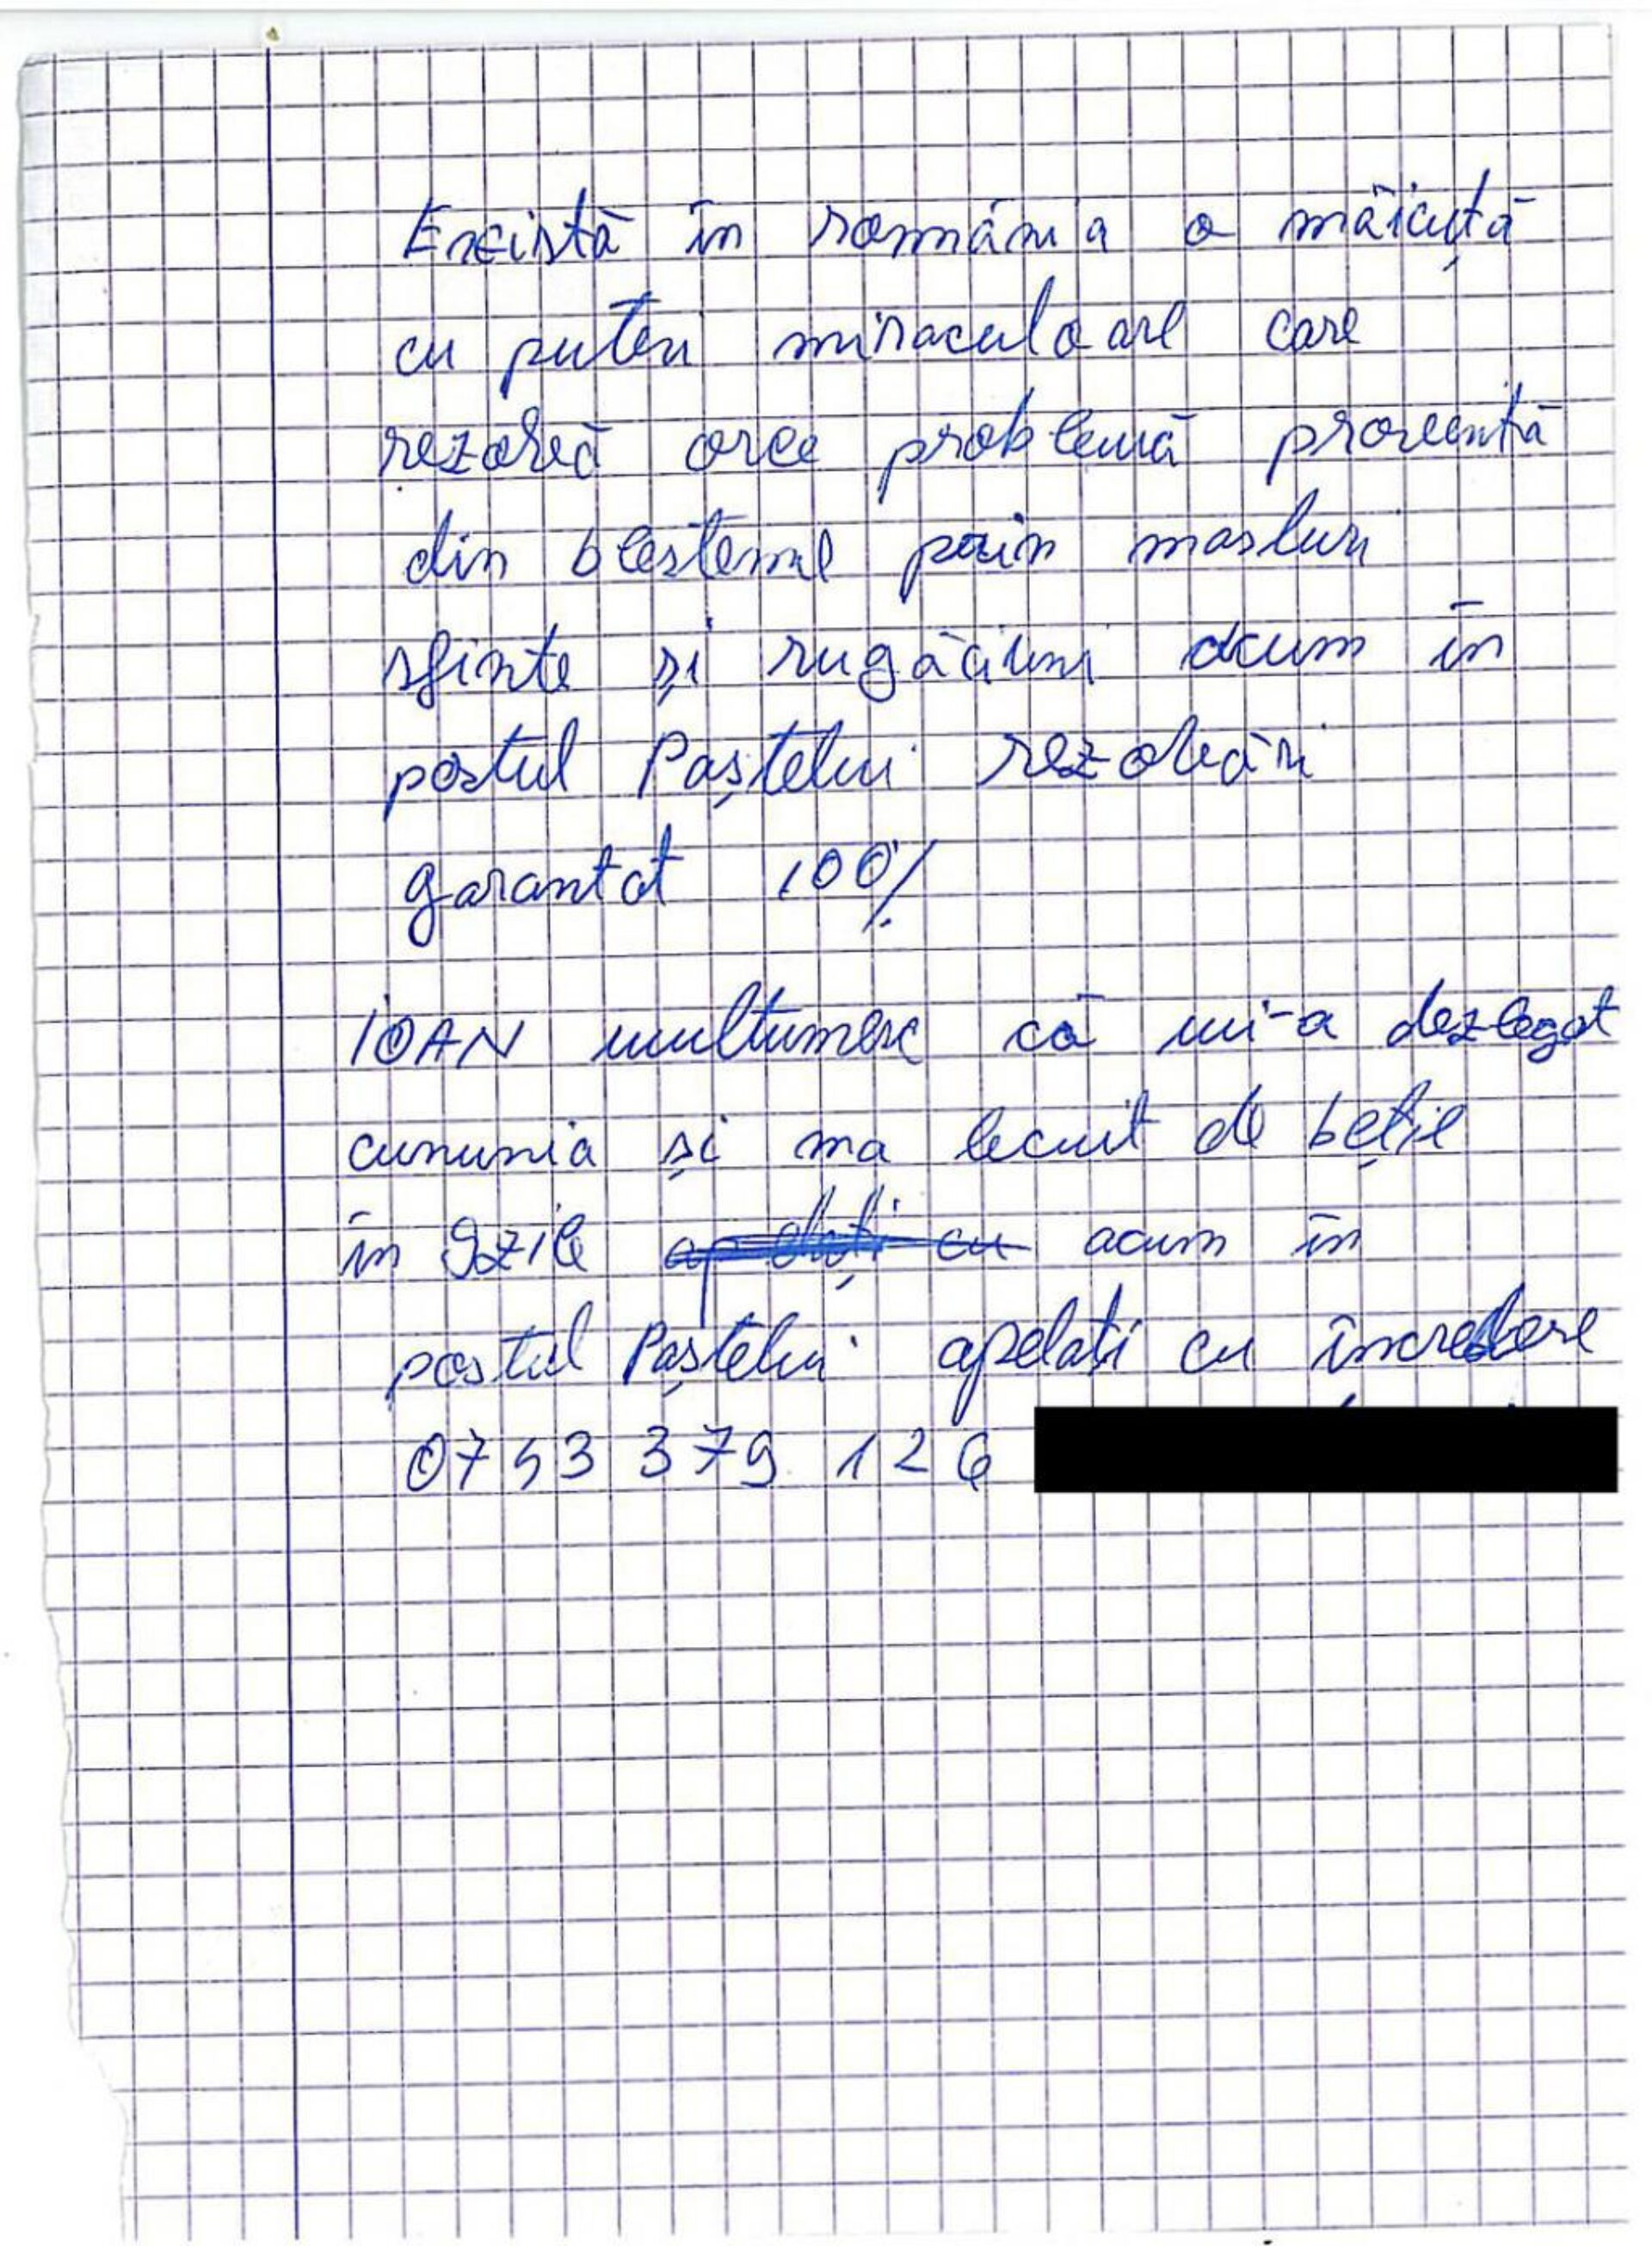 Există în românia o măicuță
cu puteri miraculoare care
rezolvă orce problemă provenită
din blesteme prin masluri
sfinte și rugăciuni acum în
postul Paștelui rezolvări
garantat 100%
IOAN multumesc că mi-a dezlegat
cununia și ma lecuit de beție
în 9 zile apelați cu acum în
postul Paștelui apelati cu încredere
0753 379 126